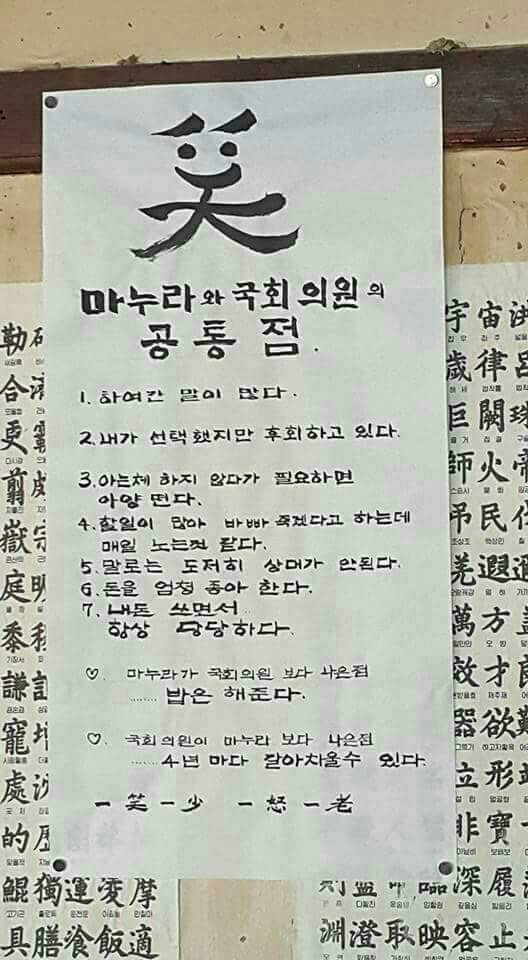 笑
마누라와 국회의원의
공통점.
1. 하여간 말이 많다.
2. 내가 선택했지만 후회하고 있다.
3. 아는체 하지 않다가 필요하면
아양 떤다.
4. 할일이 많아 바빠 죽겠다고 하는데
매일 노는것 같다.
5. 말로는 도저히 상대가 안된다.
6. 돈을 엄청 좋아 한다.
7. 내돈 쓰면서
항상 당당하다.
♡. 마누라가 국회의원 보다 나은점
........ 밥은 해준다.
♡. 국회의원이 마누라 보다 나은점
...... 4년 마다 갈아치울수 있다.
一笑一少 一怒一老
勒
合
更
翦
嶽宗
庭明
黍
謙
寵增
處沈
的歷
鯤獨運凌摩
具膳飡飯適
宇宙洪
歲律呂
巨闕珠
師火帝
弔民伐
羌遐邇
萬方蓋
效才良
器欲難
立形端
非寶寸
深履薄
淵澄取映容止